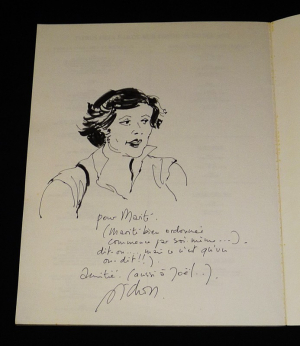 pour Marité.
(Marité bien ordonnée
commence par soi même...).
dit-on... mais ce n'est qu'un
on-dit!!)
Amitié. (aussi à Joël...).